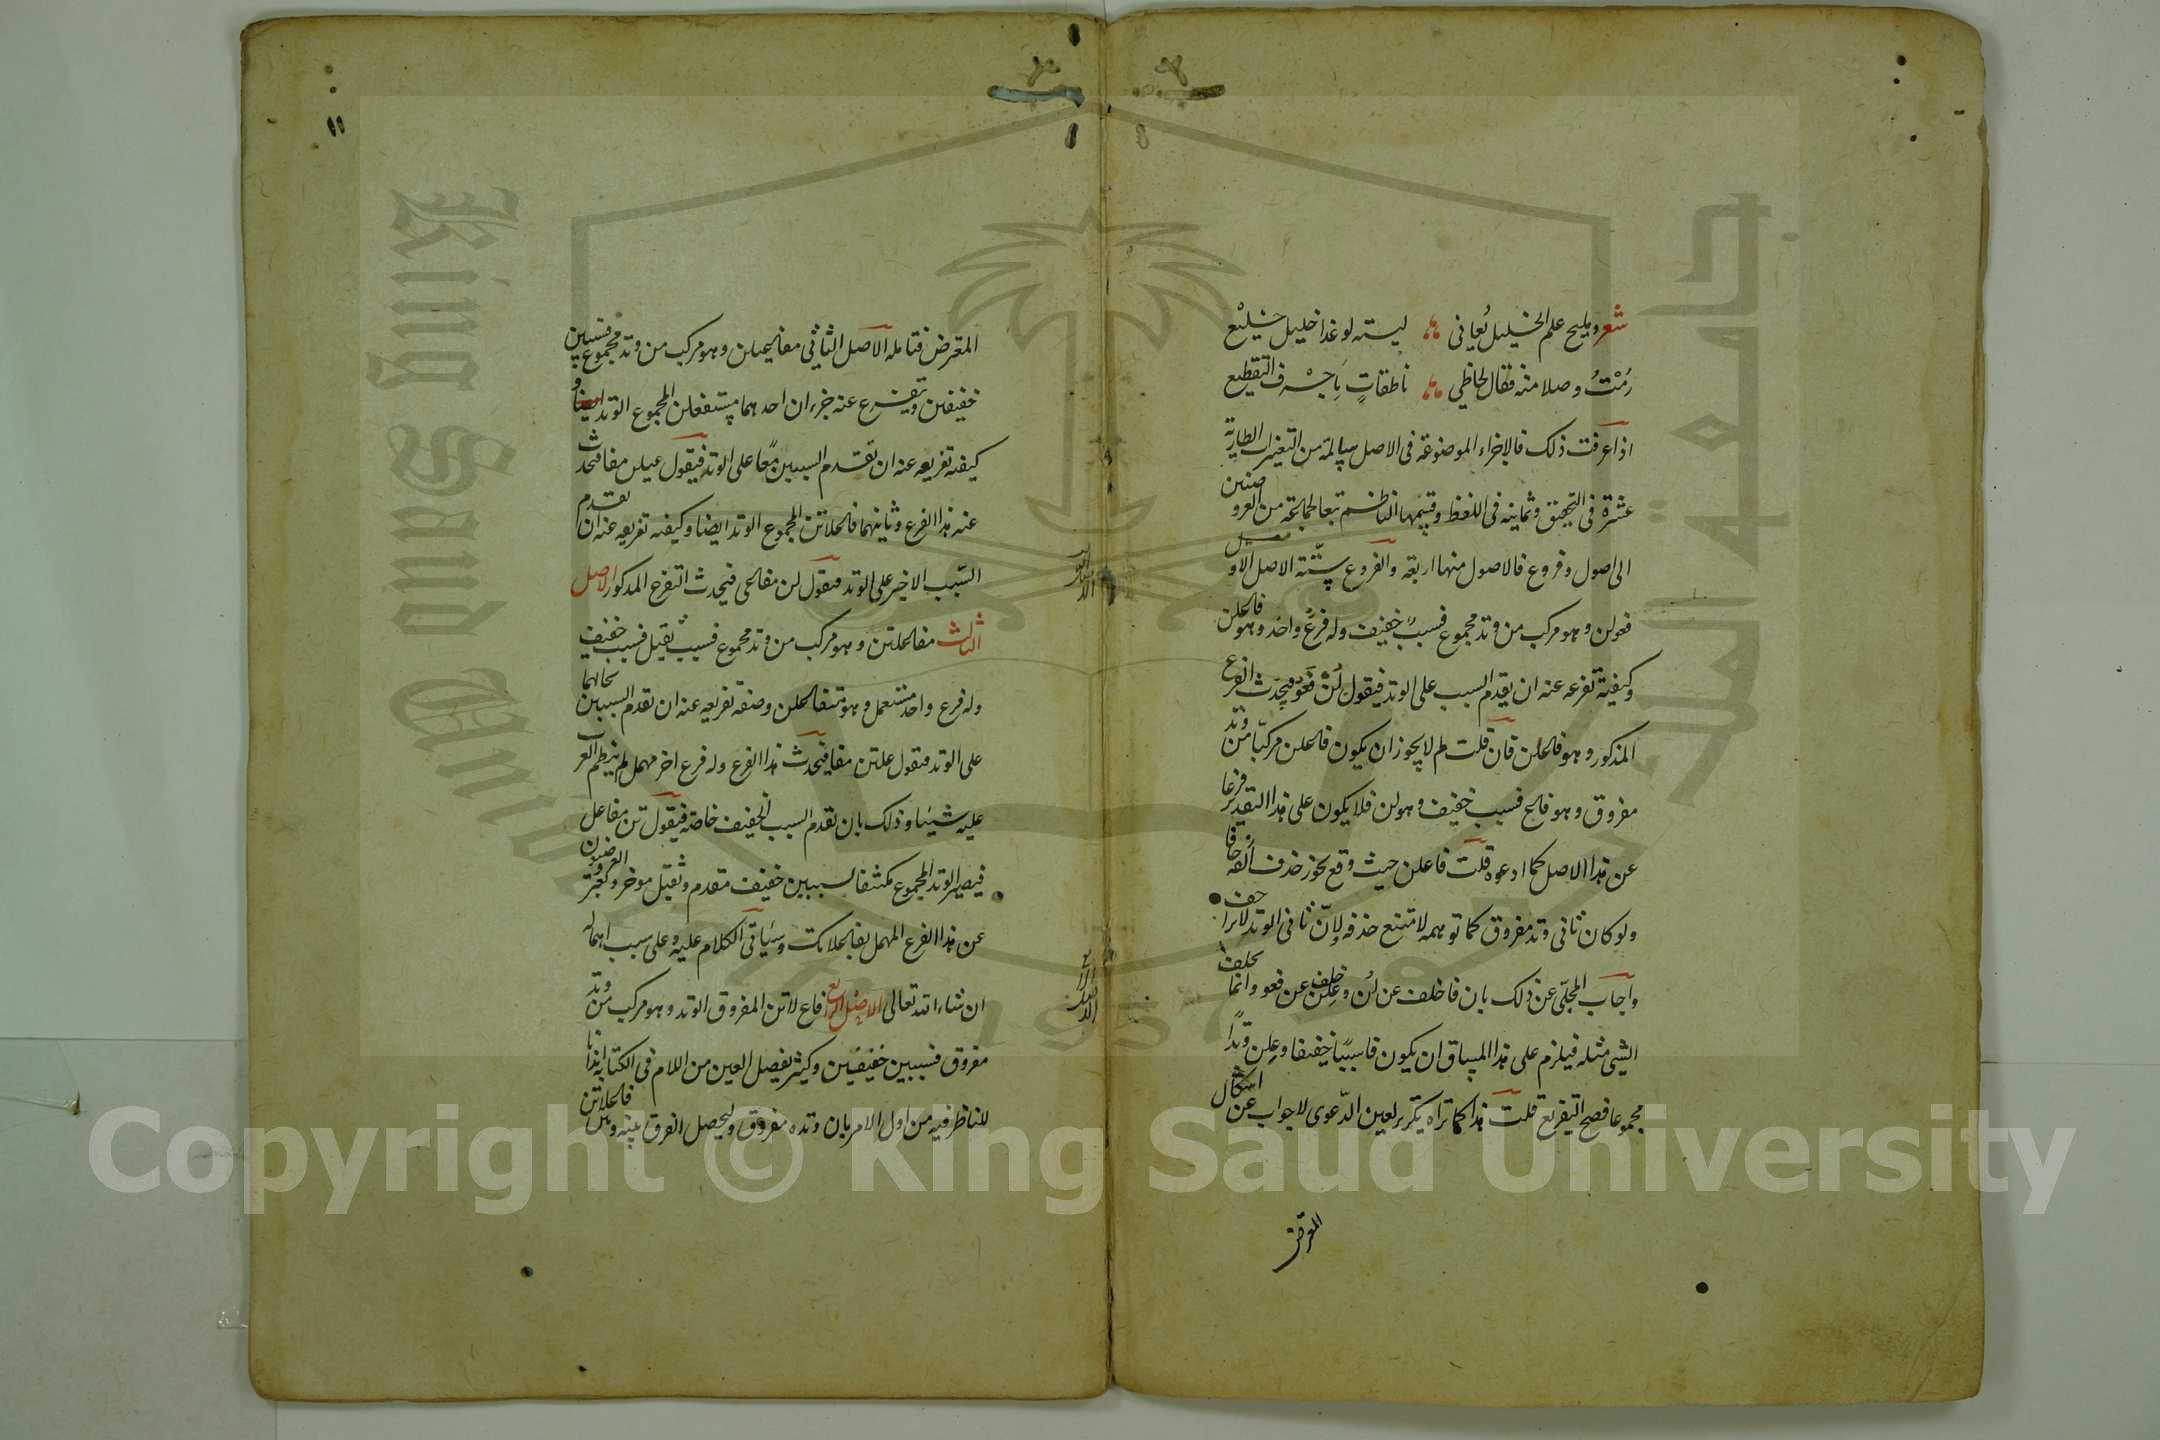 شعر ومليح علم الخليل يُعاني ليته لو غدا خليل خليع
رُمْتُ وصلا منه فقال لحاظي ناطقاتٍ بأحرف التقطيع
اذا عرفت ذلك فالاجزاء الموضوعة في الاصل سالمة من التغيرات الطارية
عشرة في التحقيق وثمانية في اللفظ وقسمها الناظم تبعا لجماعة من العروضيين
الى اصول وفروع فالاصول منها اربعة والفروع ستّة الاصل الاول
فعولن وهو مركب من وتد مجموع فسبب خفيف وله فرعٌ واحد وهو فاعلن
وكيفية تفرعه عنه ان يقدم السبب على الوتد فيقول لُنْ فعو فيحدث الفرع
المذكور وهو فاعلن فان قلت لم لا يجوز ان يكون فاعلن مركبا من وتد
مفروق وهو فاع فسبب خفيف وهو لن فلا يكون على هذا التقدير فرعا
عن هذا الاصل كما ادعوه قلت فاعلن حيث وقع يجوز حذف الفه
ولو كان ثاني وتد مفروق كما توهمه لامتنع حذفه ولانّ ثاني الوتد لا يزاحف
واجاب المحلّي عن ذلك بان فا خلف عن لُن وعلن خلف عن فعو وانما يخلف
الشي مثله فيلزم على هذا المساق ان يكون فا سببًا خفيفا وعلن وتدًا
مجموعا فصح التفريع قلت هذا كما تراه تكرير لعين الدّعوى لا جواب عن اشكال
المعترض
المعترض فتامله الاصل الثاني مفاعيلن وهو مركب من وتد مجموع فسببين
خفيفين ويتفرع عنه جزءان احدهما مستفعلن المجموع الوتد ايضا و
كيفية تفريعه عنه ان تقدم السببين معًا على الوتد فيقول عيلن مفا فيحدث
عنه هذا الفرع وثانيهما فاعلاتن المجموع الوتد ايضا وكيفية تفريعه عنه ان تقدم
السّبب الاخير على الوتد فيقول لن مفاعي فيحدث التفرع المذكور الاصل
الثالث مفاعلتن وهو مركب من وتد مجموع فسبب ثقيل فسبب خفيف
وله فرع واحد مستعمل وهو متفاعلن وصفة تفريعه عنه ان تقدم السببين بحالهما
على الوتد فيقول علتن مفا فيحدث هذا الفرع وله فرع اخر مهمل لم ينظم العرب
عليه شيئا وذلك بان تقدم السبب الخفيف خاصة فيقول تن مفاعل
فيصير الوتد المجموع مكتنفا بسببين خفيف متقدم وثقيل موخر ويعبر العروضيون
عن هذا الفرع المهمل بفاعلاتك وسيأتي الكلام عليه وعلى سبب اهماله
ان شاء الله تعالى الاصل الرابع فاع لاتن المفروق الوتد وهو مركب من وتد
مفروق فسببين خفيفين وكيثر تفصل العين من اللام في الكتابة ايذانا
للناظر فيه من اول الامر بان وتده مفروق وليحصل الفرق بينه وبين فاعلاتن